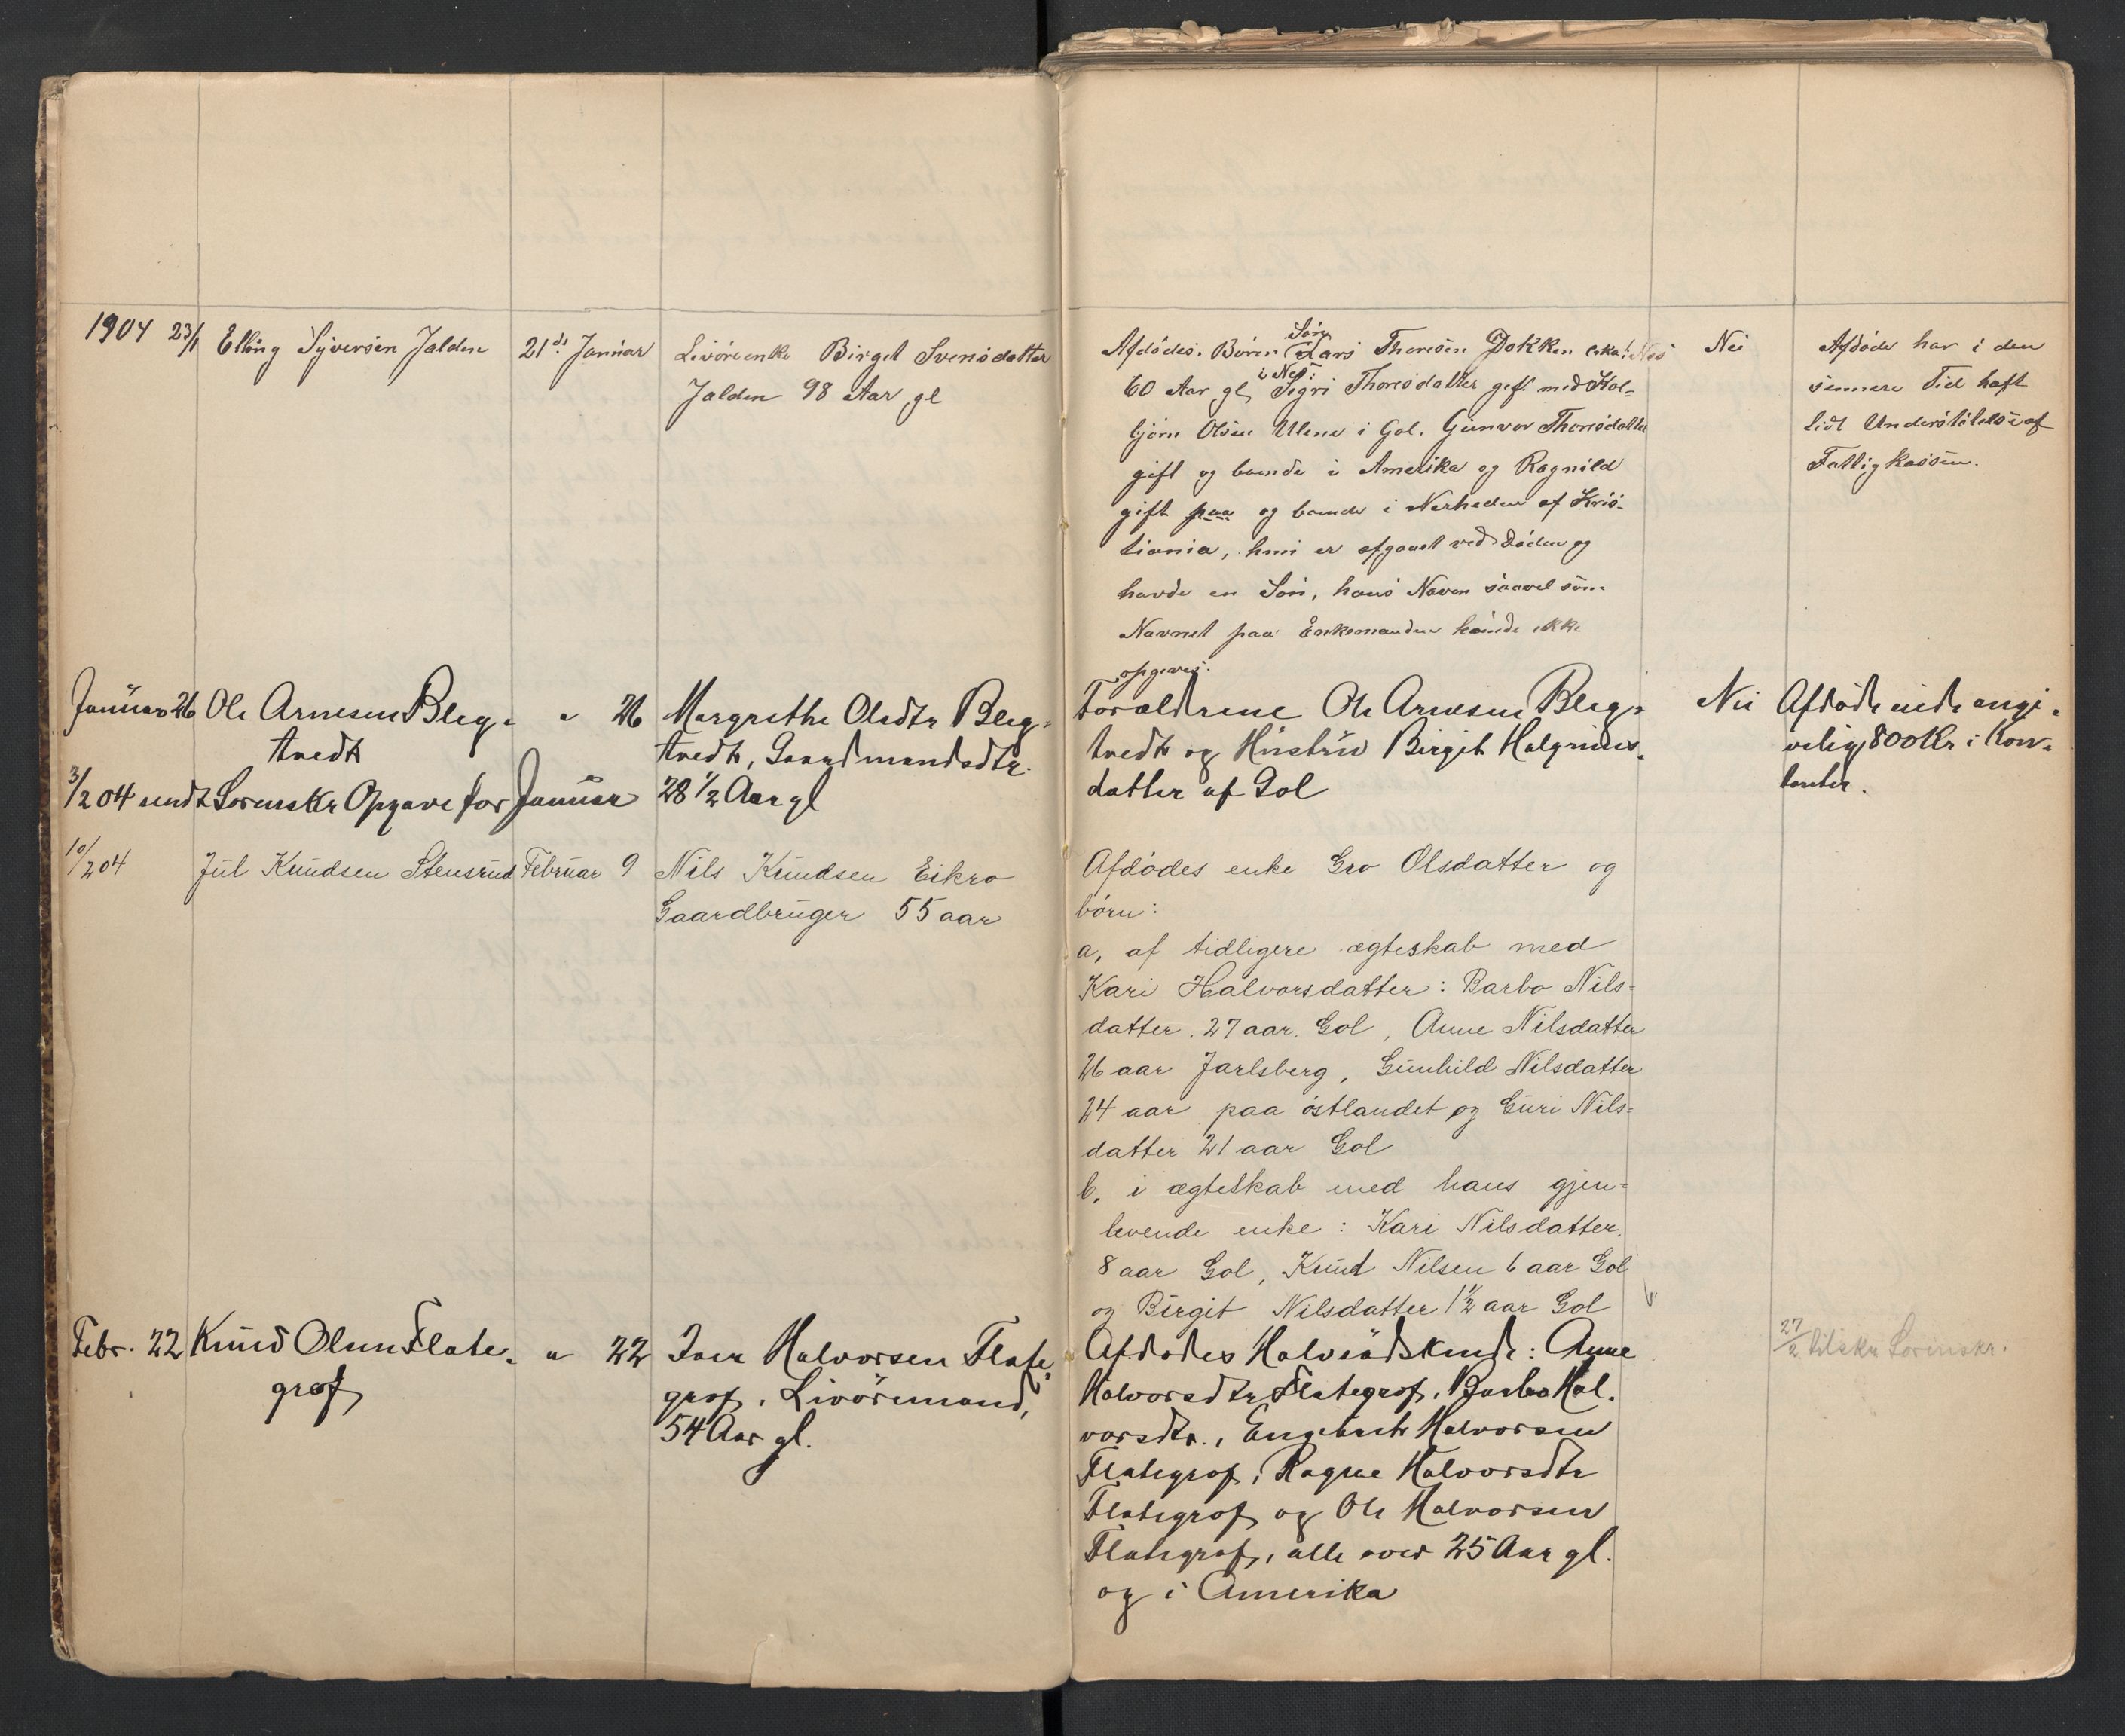 1904 23/1 Elling Syversen Jalden 21de Januar Livöreenke Birget Svensdatter
Jalden 98 Aar gl
Afdödes Börn Lars Thoresen Dokken
Sön i Nes
60 Aar gl, Sigri Thoresdatter gift med Kol-
björn Olsen Ulene i Gol. Gunvor Thoresdatter
gift og boende i Amerika og Ragnild
gift paa og boende i Nerheden af Kris-
tiania, hun er afgaaet ved Döden og
havde en Sön, hans Navn saavel som
Navnet paa Enkemanden kunde ikke
opgives.
Nei
Afdöde har i den
sennere Tid haft
lidt Understötelse af
Fattigkassen.
Januar 26 Ole Arnesen Bleg-
tvedt
" 26 Margrethe Olsdtr Bleg-
tvedt, Gaardmandsdtr.
28 1/2 Aar gl
Forældrene Ole Arnesen Bleg-
tvedt og Hustru Birgit Halgrims-
datter af Gol
Nei
Afdöde eide angi-
velig 800 Kr i Kon-
tanter.
3/2 04 sendt Sorenskr Opgave for Januar
10/2 04 Jul Knudsen Stensrud Februar 9 Nils Knudsen Eikro
Gaardbruger 55 aar
Afdödes enke Gro Olsdatter og
börn:
a, af tidligere ægteskab med
Kari Halvorsdatter: Barbo Nils=
datter. 27 aar. Gol, Anne Nilsdatter
26 aar Jarlsberg, Gunhild Nilsdatter
24 aar paa östlandet og Guri Nils=
datter 21 aar Gol
b, i ægteskab med hans gjen=
levende enke: Kari Nilsdatter.
8 aar Gol, Knut Nilsen 6 aar Gol
og Birgit Nilsdatter 1 1/2 aar Gol
Febr. 22 Knud Olsen Flate-
grof
" 22 Iver Halvorsen Flate-
grof, Livöremand,
54 Aar gl.
Afdödes Halvsödskende: Anne
Halvorsdtr Flategrof, Barbo Hal-
vorsdtr., Engebret Halvorsen
Flategrof, Ragne Halvorsdtr
Flategrof og Ole Halvorsen
Flategrof, alle over 25 Aar gl.
og i Amerika
27/2 tilskr Sorenskr.